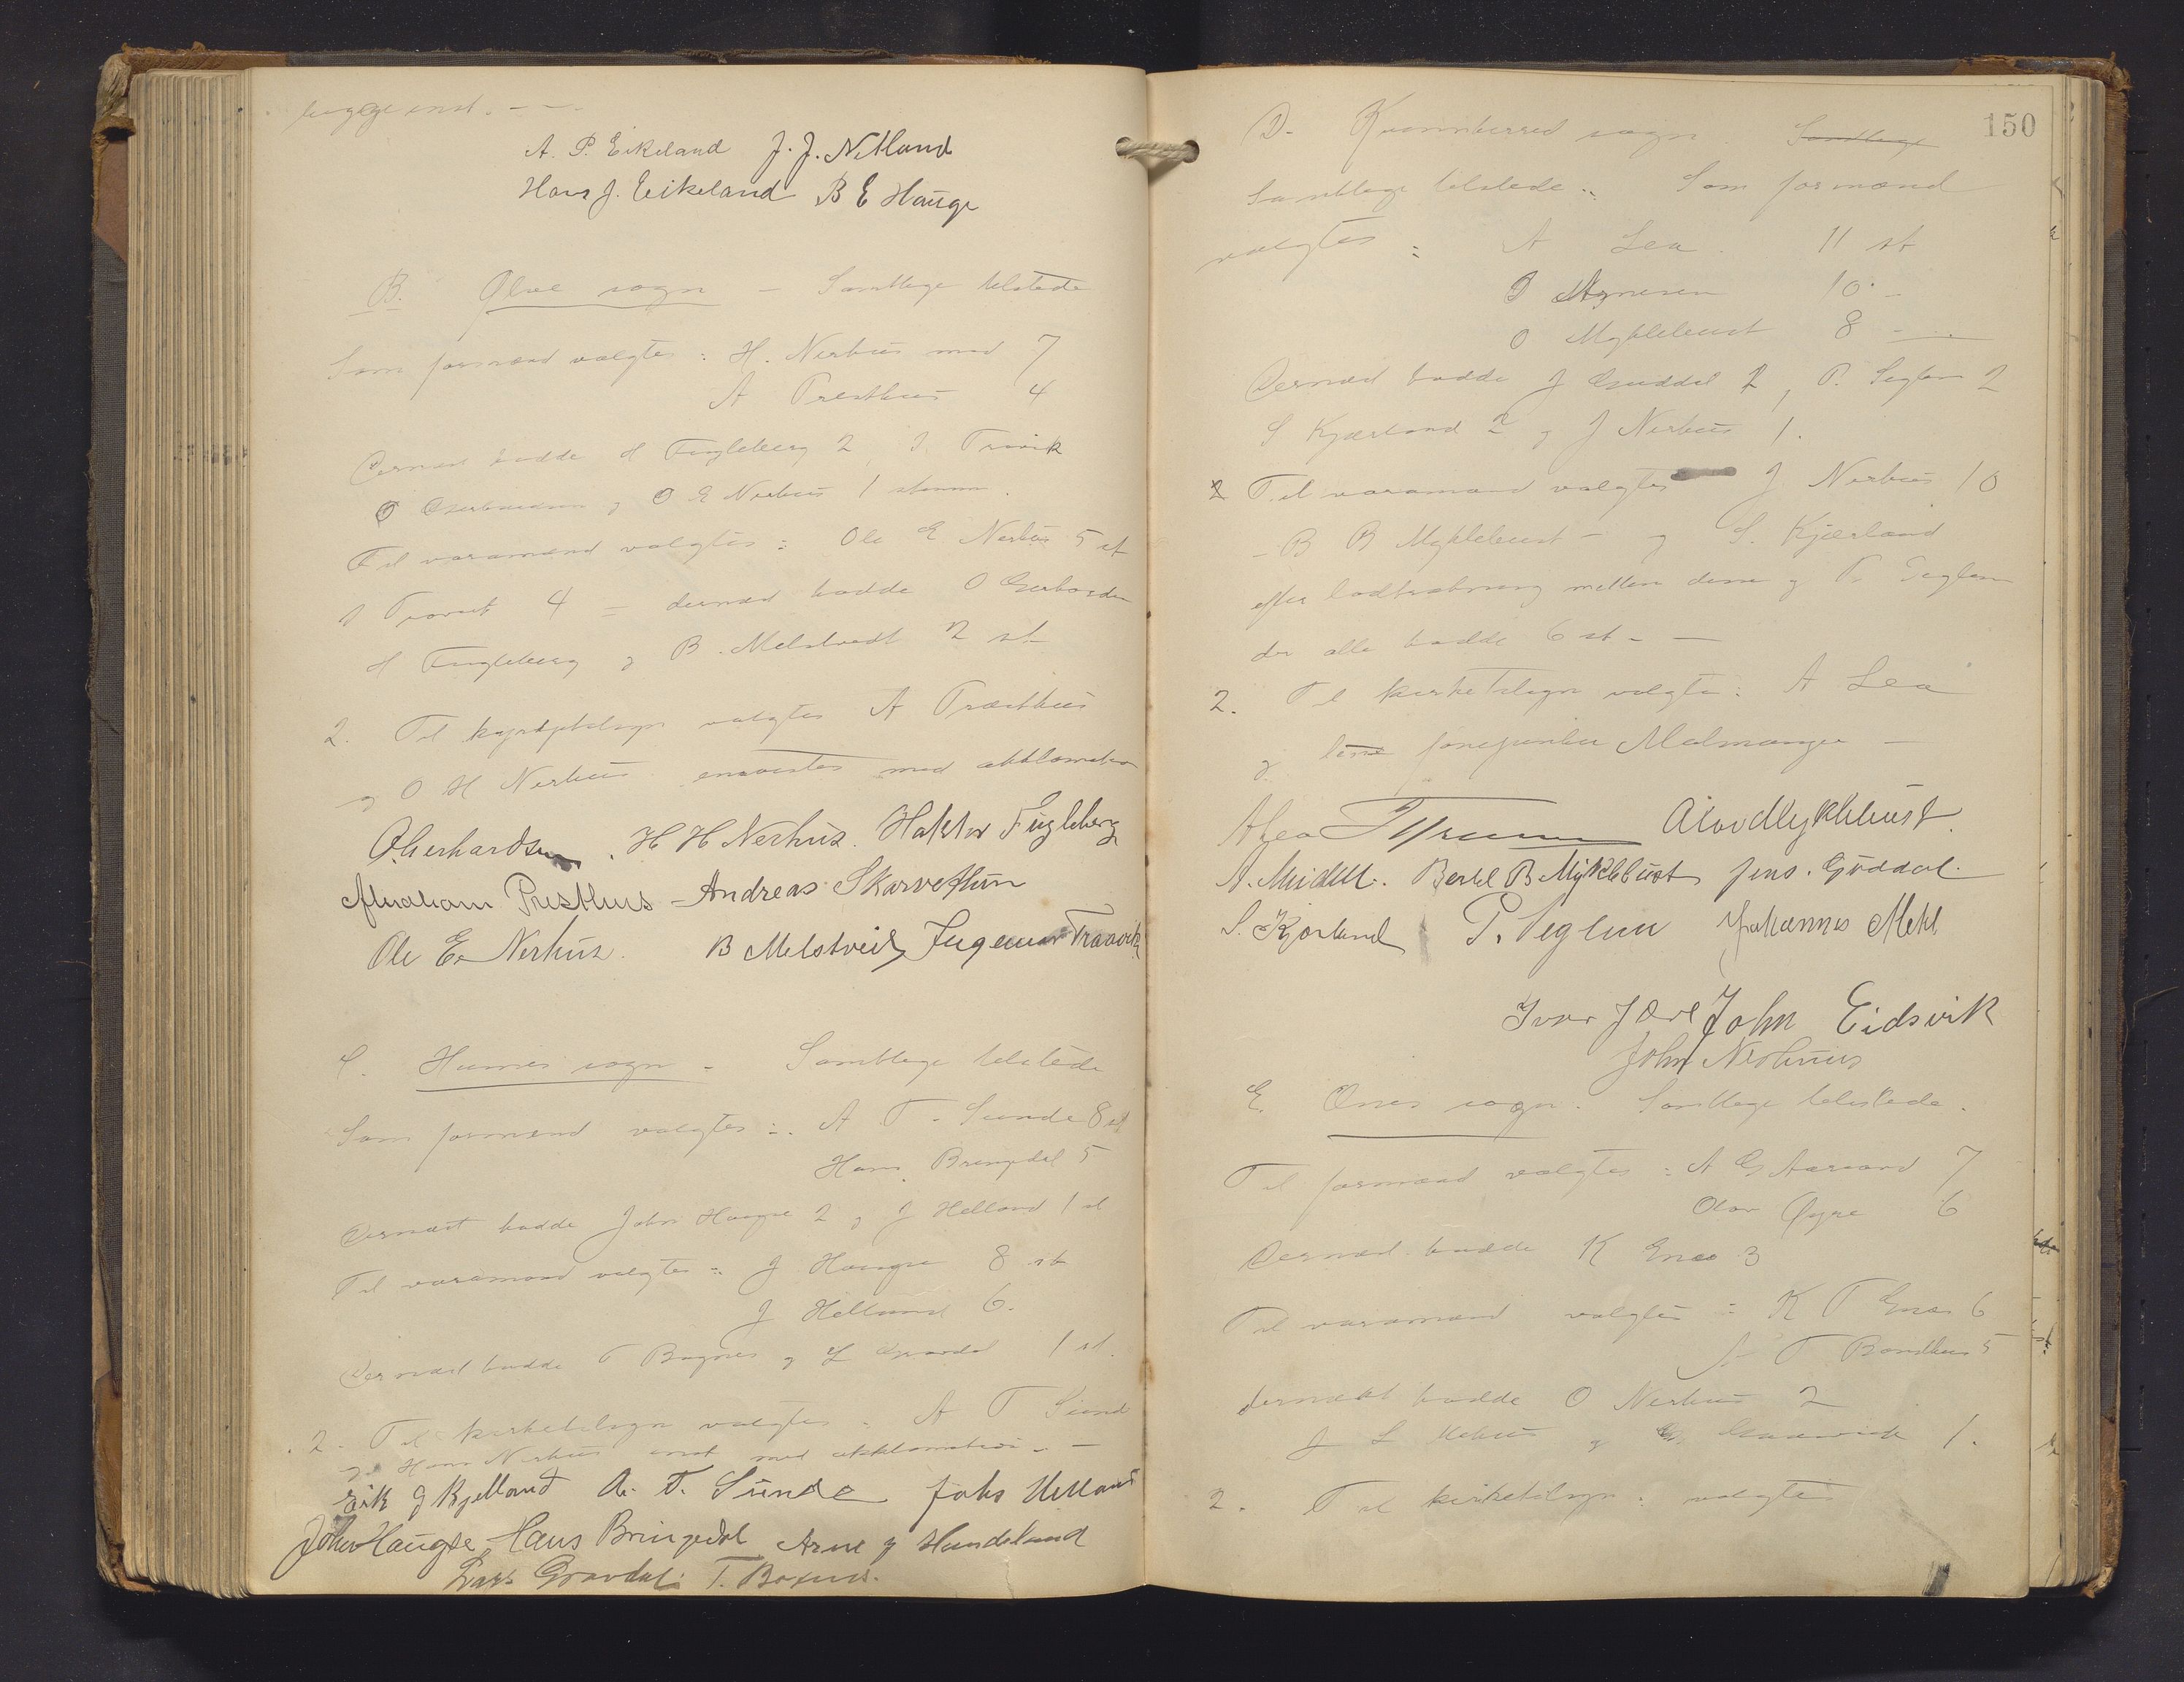 begge enst. - - -
A. P. Eikeland J. J. Netland
Hans J. Eikeland B E Hauge
B. Ølve sogn - Samtlige tilstede
Som formænd valgtes: H. Nerhus med 7
A Presthus 4
Dernæst hadde H Fugleberg 2, I. Travik
O Gerhardsen og O E Nerhus 1 stemme.
Til varamænd valgtes: Ole E. Nerhus 5 st
I Travik 4 = dernæst hadde O Gerhardsen
H Fugleberg og B. Melstveit 2 st
2. Til valgtes A Præsthus
og O H Nerhus enst med akklamation
O. Gerhardsen. H H Nerhus. Haktor Fugleberg
Abraham Presthus - Andreas Skarveflun
Ole E. Nerhus. B Melstveit Ingemar Traavik
C. Husnes sogn - Samtlige tilstede
Som formænd valgtes: A T. Sunde 8 st
Hans Bringedal 5
Dernæst hadde John Haugse 2 og J Helland 1 st
Til varamænd valgtes: J Haugse 8 st
J Helland 6.
Dernæst hadde T Bognes og L Gravdal 1 st.
2. Til kirketilsyn valgtes: A T Sunde
og Hans Nerhus enst med akklamation. -
Erik J Kjelland A. T. Sunde Johs Helland
John Haugse Hans Bringedal Arne J Handeland
Lars Gravdal. T. Bognes.
150
D. Kvannherred sogn. Samtlige
Samtlige tilstede: Som formænd
valgtes: A Lea. 11 st
10 -
O Myklebust 8 -
Dernæst hadde J Guddal 2, P. Seglem 2
S Kjærland 2 og J Nerhus 1.
2 Til varamænd valgtes J Nerhus 10
- B B Myklebust - og S. Kjærland
efter lodtrækning mellem denne og P. Seglem
der alle hadde 6 st - -
2. Til kirketilsyn valgte: A Lea
og frue Malmanger -
A Lea Olav Myklebust
A. Meidell. Bertel B Myklebust Jens. Guddal.
S. Kjærland P. Seglem Johannes Mehl
Ivar John Eidsvik
John Nerhuus
E. Ænes sogn. Samtlige tilstede.
Til formænd valgtes: A G Aarsand 7
Olav Øyre 6
Dernæst hadde K Enæs 3
Til varamænd valgtes: K T Enæs 6
A T Bondhus 5
dernæst hadde O Nerhus 2
J L og 1.
2. Til kirketilsyn: valgtes